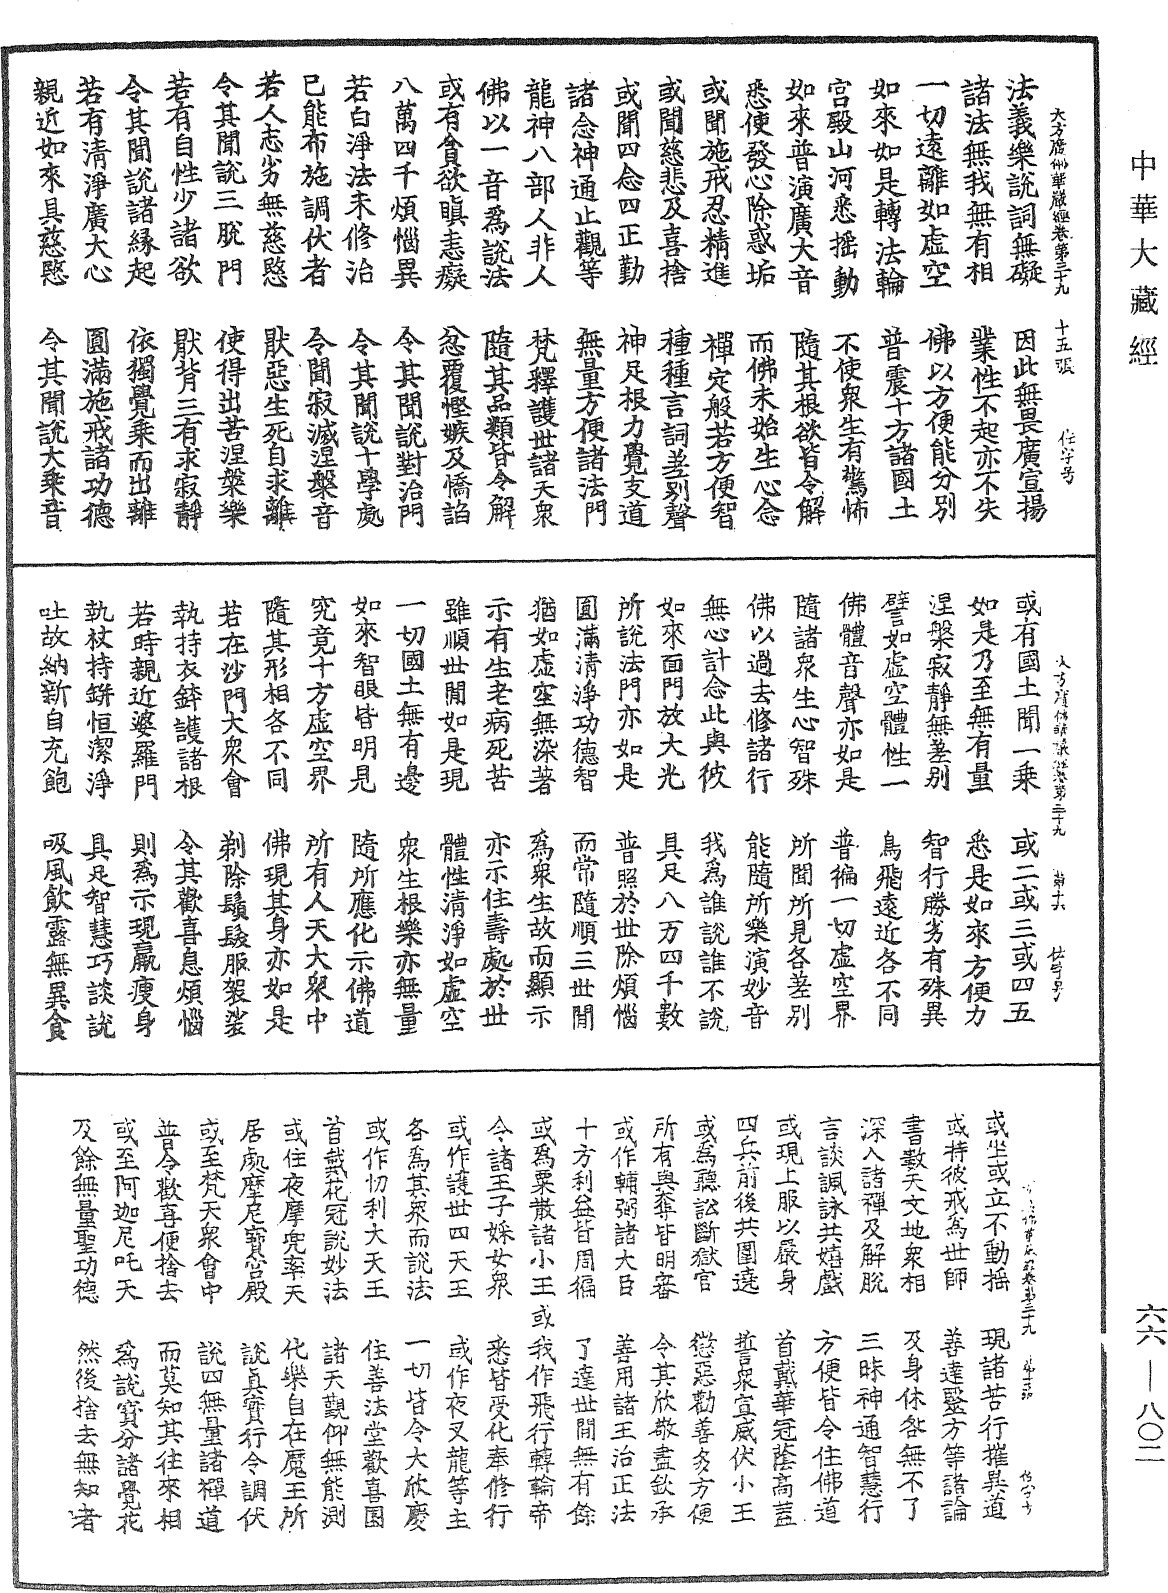 中華大藏經
大方廣佛華嚴經卷第三十九　十五張　仕字号
法義樂說詞無礙　因此無畏廣宣揚
諸法無我無有相　業性不起亦不失
一切遠離如虛空　佛以方便能分別
如來如是轉法輪　普震十方諸國土
宮殿山河悉搖動　不使衆生有驚怖
如來普演廣大音　隨其根欲皆令解
悉使發心除惑垢　而佛未始生心念
或聞施戒忍精進　禪定般若方便智
或聞慈悲及喜捨　種種言詞差別聲
或聞四念四正勤　神足根力覺支道
諸念神通止觀等　無量方便諸法門
龍神八部人非人　梵釋護世諸天衆
佛以一音爲說法　隨其品類皆令解
或有貪欲瞋恚癡　忿覆慳嫉及憍諂
八萬四千煩惱異　令其聞說對治門
若白淨法未修治　令其聞說十學處
已能布施調伏者　令聞寂滅涅槃音
若人志劣無慈愍　猒惡生死自求離
令其聞說三脫門　使得出苦涅槃樂
若有自性少諸欲　猒背三有求寂靜
令其聞說諸縁起　依獨覺乘而出離
若有清淨廣大心　圓滿施戒諸功德
親近如來具慈愍　令其聞說大乘音
或有國土聞一乘　或二或三或四五
如是乃至無有量　悉是如來方便力
涅槃寂靜無差別　智行勝劣有殊異
譬如虛空體性一　鳥飛遠近各不同
佛體音聲亦如是　普徧一切虛空界
隨諸衆生心智殊　所聞所見各差別
佛以過去修諸行　能隨所樂演妙音
無心計念此與彼　我爲誰說誰不說
如來面門放大光　具足八万四千數
所說法門亦如是　普照於世除煩惱
圓滿清淨功德智　而常隨順三世閒
猶如虛空無深著　爲衆生故而顯示
示有生老病死苦　亦示住壽處於世
雖順世閒如是現　體性清淨如虛空
一切國土無有邊　衆生根樂亦無量
如來智眼皆明見　隨所應化示佛道
究竟十方虛空界　所有人天大衆中
隨其形相各不同　佛現其身亦如是
若在沙門大衆會　剃除鬚髮服袈裟
執持衣鉢護諸根　令其歡喜息煩惱
若時親近婆羅門　則爲示現羸瘦身
執杖持缾恒潔淨　具足智慧巧談說
吐故納新自充飽　吸風飲露無異食
或坐或立不動搖　現諸苦行摧異道
或持彼戒為世師　善達醫方等諸論
書數天文地衆相　及身休咎無不了
深入諸禪及解脫　三昧神通智慧行
言談諷詠共嬉戲　方便皆令住佛道
或現上服以嚴身　首戴華冠蔭高蓋
四兵前後共圍遶　誓衆宣威伏小王
或為聽訟斷獄官　懲惡勸善多方便
所有與奪皆明審　令其欣敬盡欽承
或作輔弼諸大臣　善用諸王治正法
十方利益皆周徧　了達世閒無有餘
或為粟散諸小王　或我作飛行轉輪帝
令諸王子婇女衆　悉皆受化奉修行
或作護世四天王　或作夜叉龍等主
各為其衆而說法　一切皆令大欣慶
或作忉利大天王　住善法堂歡喜園
首戴花冠說妙法　諸天覲仰無能測
或住夜摩兜率天　化樂自在魔王所
居處摩尼寶宮殿　說眞實行令調伏
或至梵天衆會中　說四無量諸禪道
普令歡喜便捨去　而莫知其往來相
或至阿迦尼吒天　爲說寶分諸覺花
及餘無量聖功德　然後捨去無知者
六六—八〇二